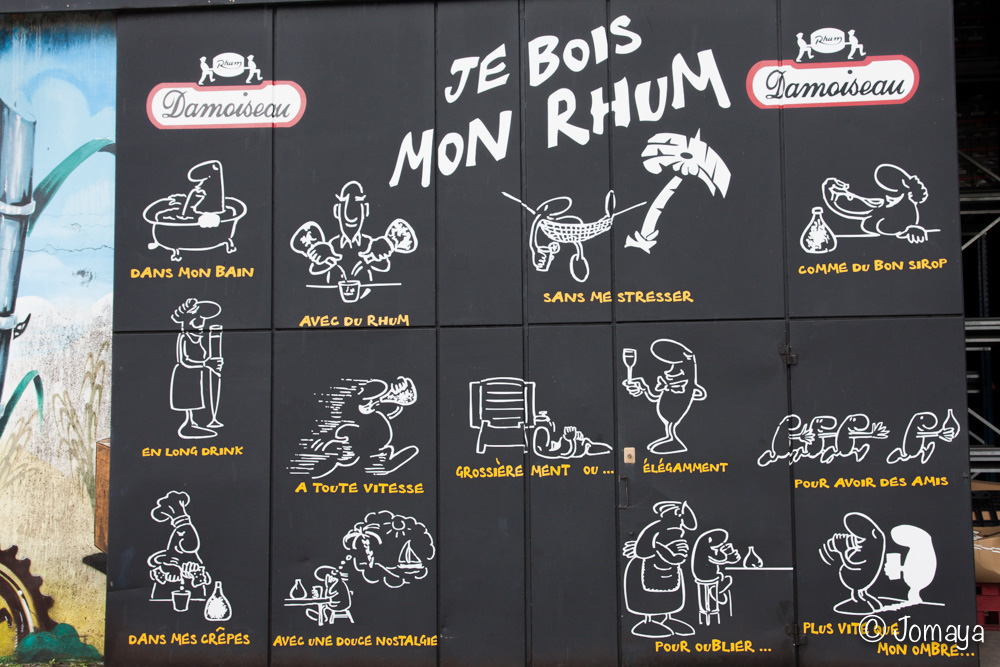 Rhum
Damoiseau
JE BOIS
MON RHUM
Rhum
Damoiseau
DANS MON BAIN
AVEC DU RHUM
SANS ME STRESSER
COMME DU BON SIROP
EN LONG DRINK
A TOUTE VITESSE
GROSSIÈREMENT OU ...
ÉLÉGAMMENT
POUR AVOIR DES AMIS
DANS MES CRÊPES
AVEC UNE DOUCE NOSTALGIE
POUR OUBLIER ...
PLUS VITE QUE
MON OMBRE...
© Jomaya